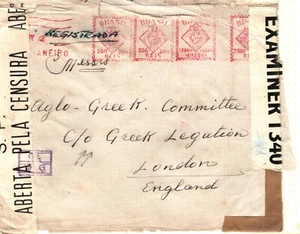 BRASIL BRASIL BRASIL BRASIL
REGISTRADA
JANEIRO
200 REIS
Messrs
Aglo-Greek Committee
C/o Greek Legation
London
England
ABERTA PELA CENSURA ABE
S. P.
EXAMINER 1340